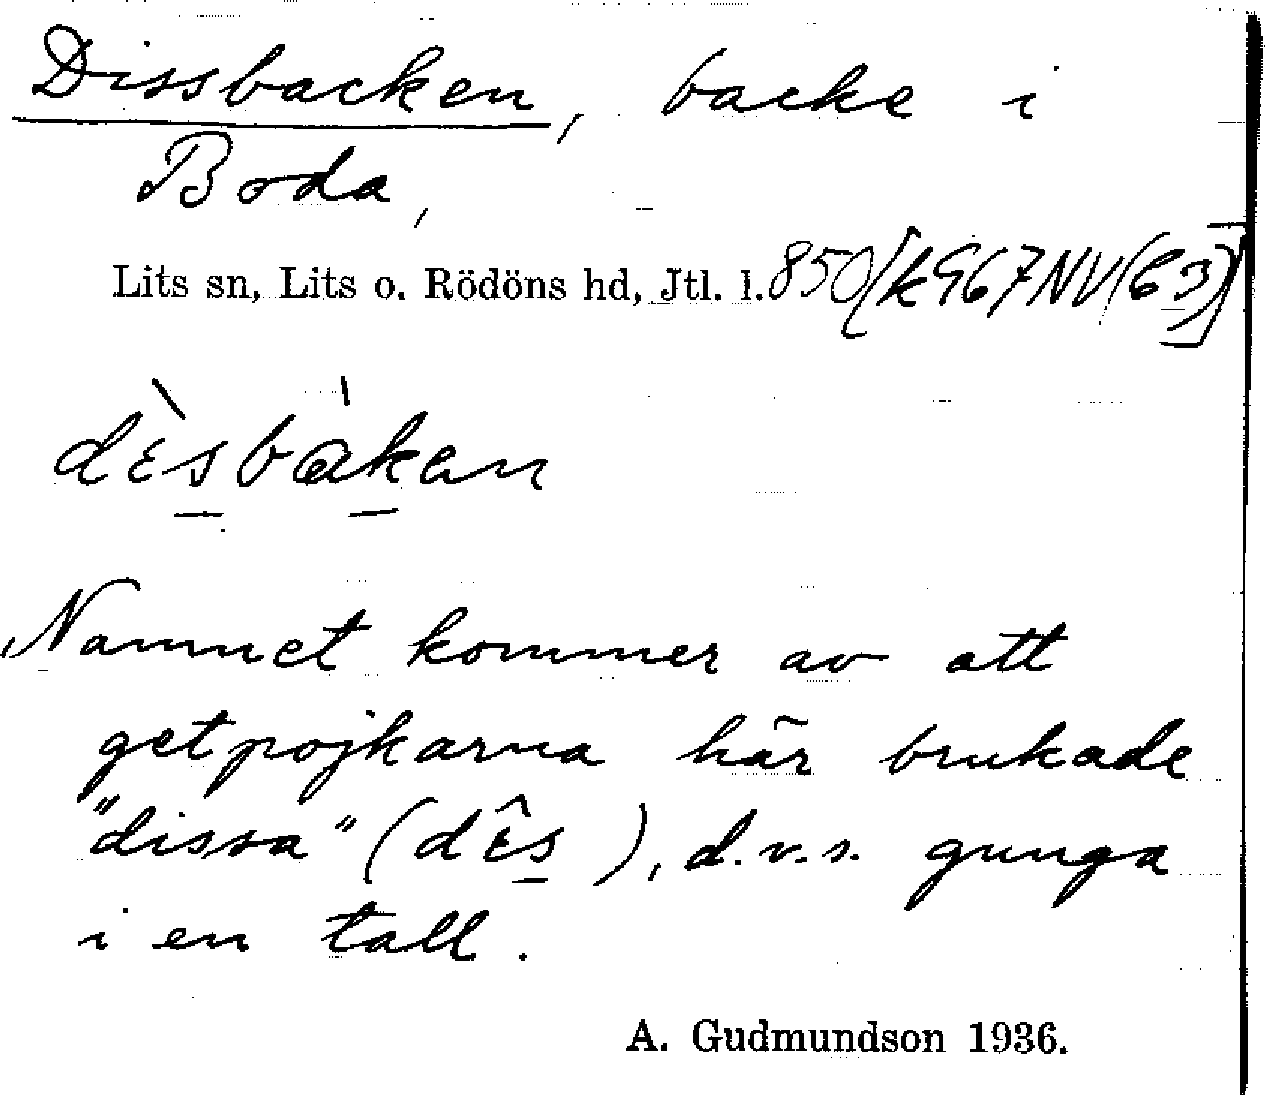 Dissbacken, backe i
Boda,
Lits sn, Lits o. Rödöns hd, Jtl. l. 850/k967NV(C3)
dɛ̀sbàkan
Namnet kommer av att
getpojkarna här brukade
"dissa" (dɛ̂s), d.v.s. gunga
i en tall.
A. Gudmundson 1936.